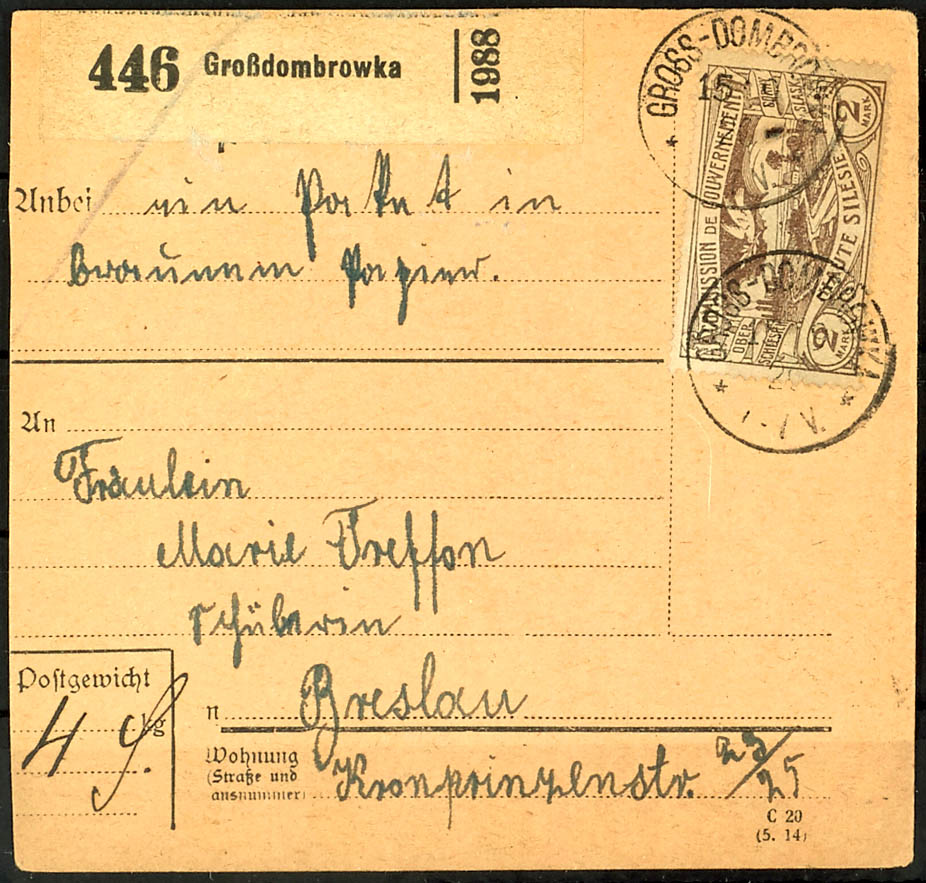 446 Großdombrowka 1988
GROSS-DOMBROWKA
15
COMMISSION DE GOUVERNEMENT
HAUTE SILESIE
2 MARK
OBER SCHLESIEN
2 MARK
GROSS-DOMBROWKA
Anbei ein Paket in
braunem Papier.
An
Fräulein
Marie Treffon
Schülerin
Postgewicht
4 kg
n Breslau
Wohnung
(Straße und
ausnummer)
Kronprinzenstr. 23/25
C 20
(5. 14)